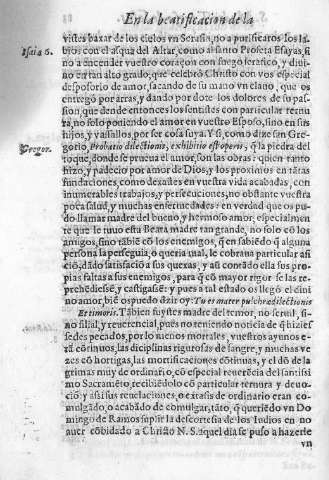 En la beatificacion de la
vistes baxar de los cielos vn Serafin, no a purificaros los la-
Isaiæ 6.
bios con el asqua del Altar, como al santo Profeta Esayas, si
no a encender vuestro coraçon con fuego serafico, y diui-
no en tan alto grado, que celebrò Christo con vos especial
desposorio de amor, sacando de su mano vn clauo, que os
entregò por arras, y dando por dote los dolores de su pas-
sion, que desde entonces los sentistes con particular ternu
ra, no solo poniendo el amor en vuestro Esposo, sino en sus
hijos, y vasallos, por ser cosa suya. Y si, como dize san Gre-
Gregor.
gorio, Probatio dilectionis, exhibitio est operis, q̃ la piedra del
toque, donde se prueua el amor, son las obras: quien tanto
hizo, y padecio por amor de Dios, y los proximos en tãtas
fundaciones, como dexastes en vuestra vida acabadas, con
innumerables trabajos, y persecuciones, no obstante vuestra
poca salud, y muchas enfermedades: en verdad que os pu-
do llamar madre del bueno, y hermoso amor, especialmen
te que le tuuo esta Beata madre tan grande, no solo cõ los
amigos, sino tãbiẽ cõ los enemigos, q̃ en sabiẽdo q̃ alguna
persona la perseguia, o queria mal, le cobraua particular afi
ciõ, dãdo satisfaciõ a sus quexas, y asi conrado ella sus pro-
pias faltas a sus enemigos, para q̃ cõ mayor rigor se las re-
prehẽdiesse, y castigassẽ: y pues a tal estado os llegó el diui
no amor, biẽ os puedo dezir oy: Tu es mater pulchræ dilectionis
Et timoris. Tãbien fuystes madre del temor, no seruil, si-
no filial, y reuerencial, pues no teniendo noticia de q̃ hizies
sedes pecados, por lo menos mortales, vuestros ayunos e-
rã cõtinuos, las diciplinas rigurosas de sangre, y muchas ve
zes cõ hortigas, las mortificaciones cõtinuas, y el dõ de la
grimas muy de ordinario, cõ especial reuerẽcia del santissi
mo Sacramẽto, recibiẽdolo cõ particular ternura y deuo-
ciõ y asi sus reuelaciones, o extasis de ordinario eran co-
mulgãdo, o acabãdo de comulgar, tãto, q̃ queriẽdo vn Do
mingo de Ramos suplir la descortesia de los Iudios en no
auer cõbidado a Christo N. S. aquel dia se puso a hazerle
vn